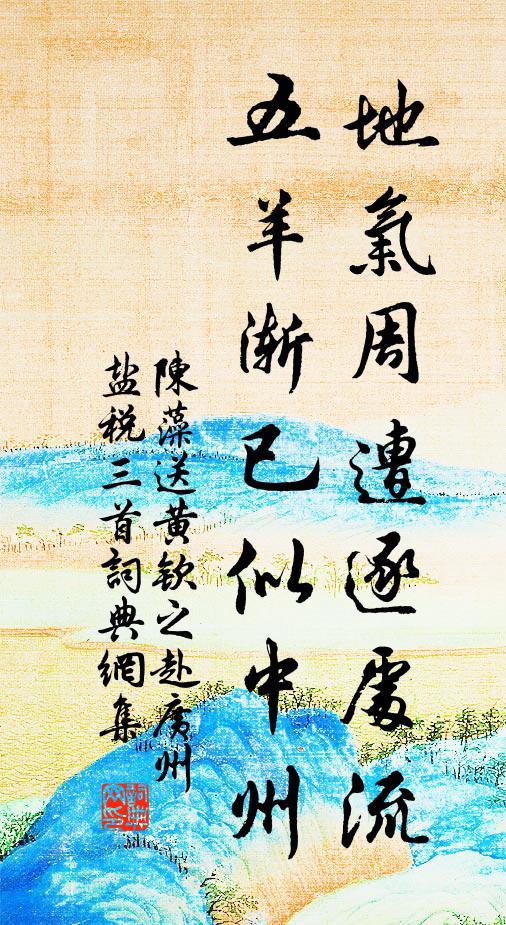 地氣周遭逐處流
五羊漸已似中州
陳藻送黃欽之赴廣州
盐税三首詞典網集